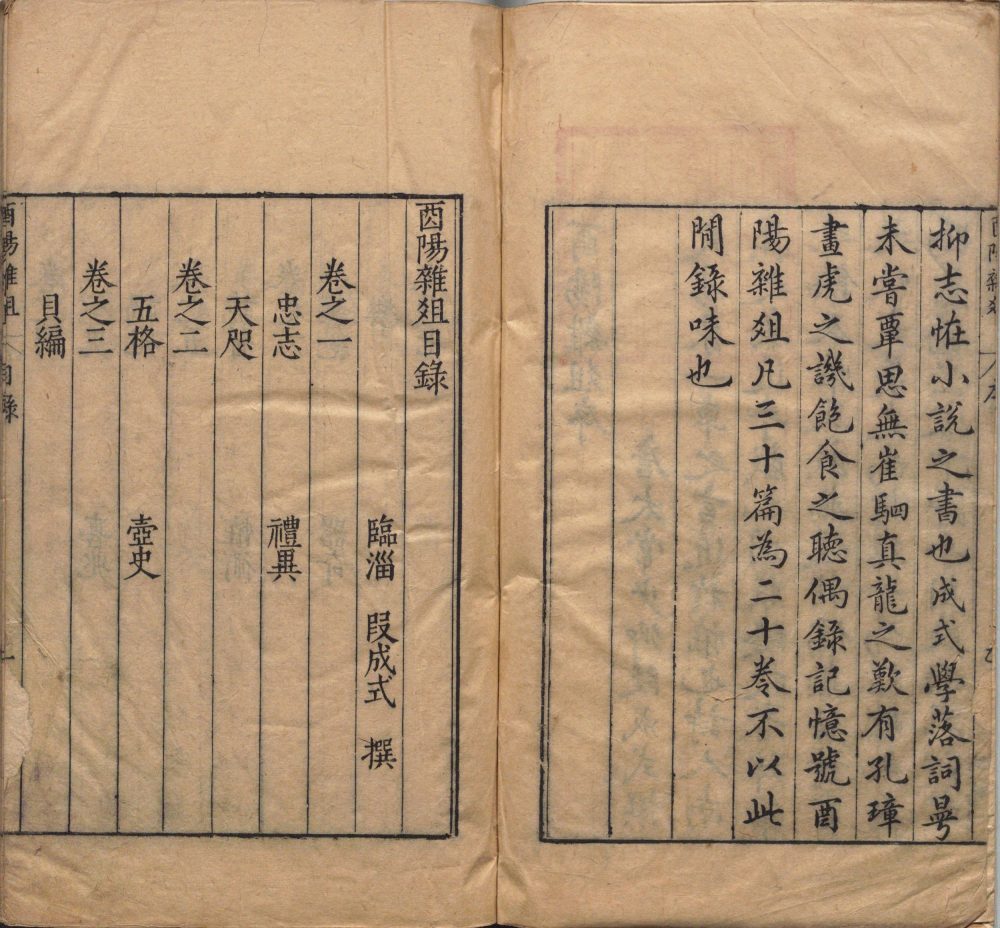 抑志恠小說之書也成式學落詞曼
未嘗覃思無崔駰真龍之歎有孔璋
畫虎之譏飽食之聴偶錄記憶號酉
陽雜俎凡三十篇為二十卷不以此
間錄味也
酉陽雜俎目錄
臨淄 段成式 撰
卷之一
忠志 禮異
天咫
卷之二
五格 壺史
卷之三
貝編
酉陽雜俎 目錄 一